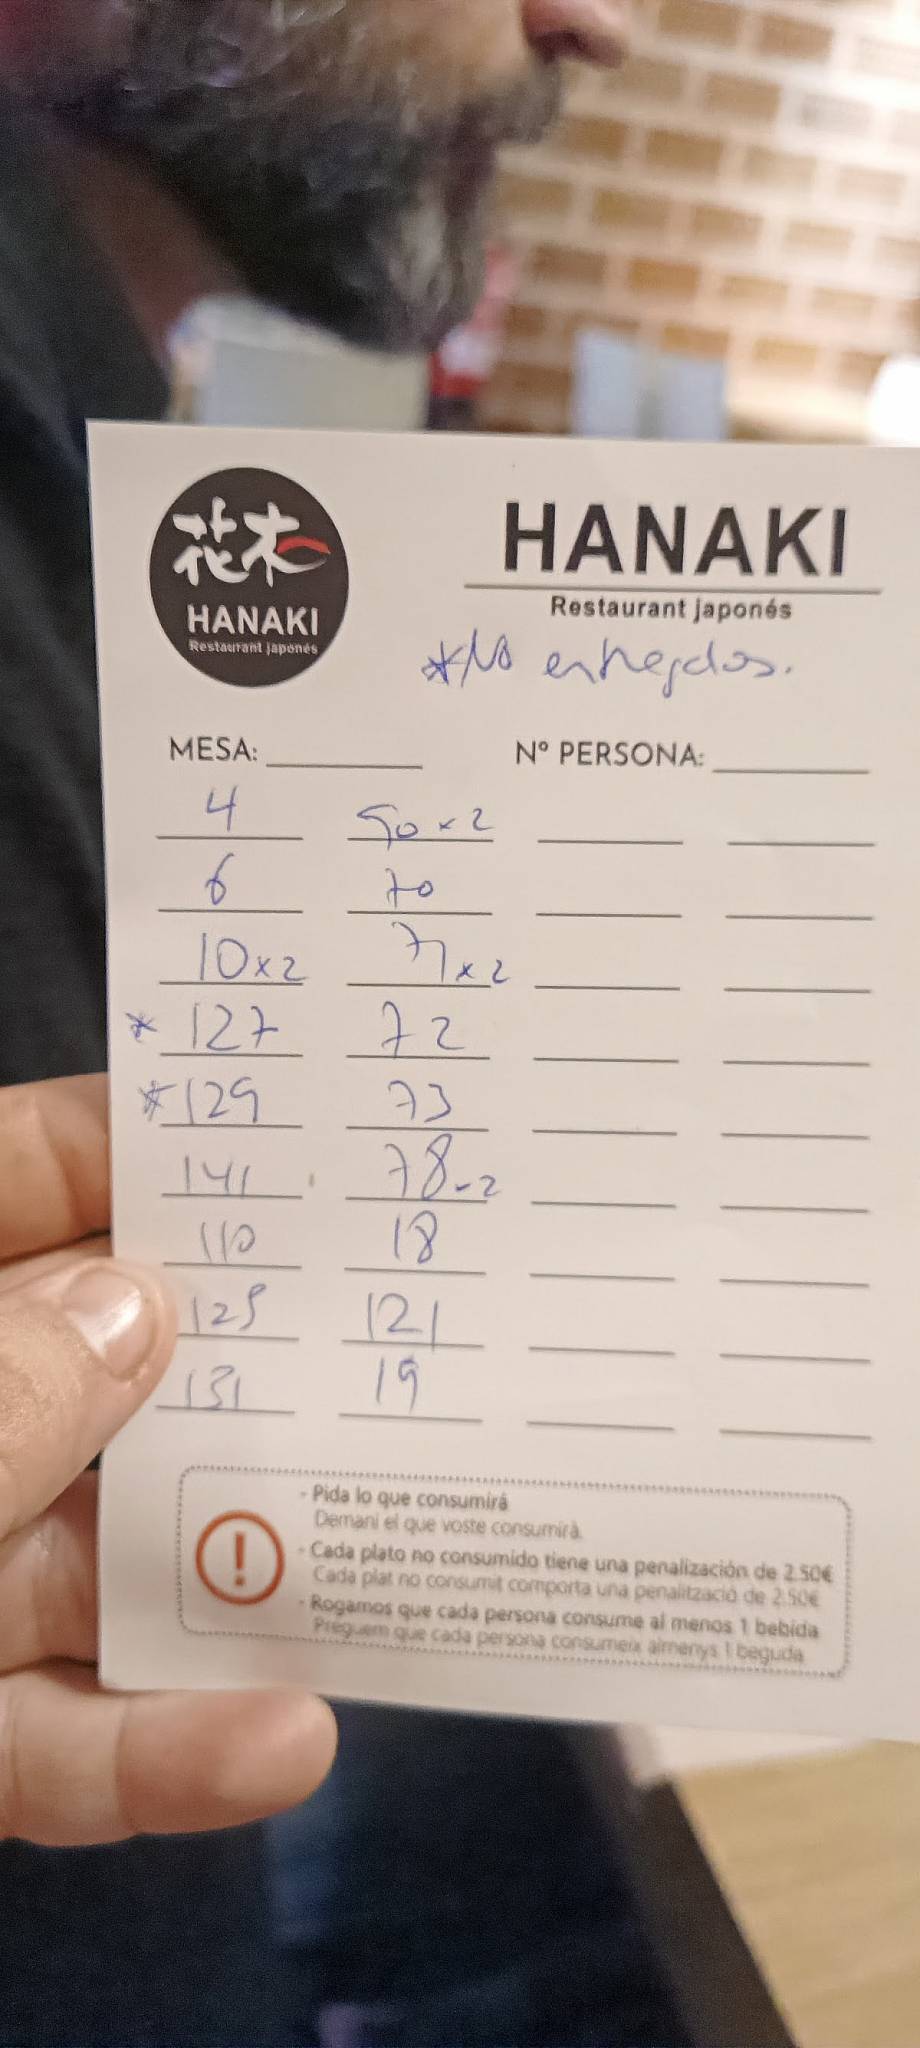 花木
HANAKI
Restaurant japonés
HANAKI
Restaurant japonés
*No entregados.
MESA: Nº PERSONA:
4 50 x 2
6 70
10 x 2 71 x 2
* 127 72
* 129 73
141 78 - 2
110 18
125 121
131 19
- Pida lo que consumirá
Demani el que voste consumirà.
- Cada plato no consumido tiene una penalización de 2.50€
Cada plat no consumit comporta una penalització de 2.50€
- Rogamos que cada persona consume al menos 1 bebida
Preguem que cada persona consumeix almenys 1 beguda